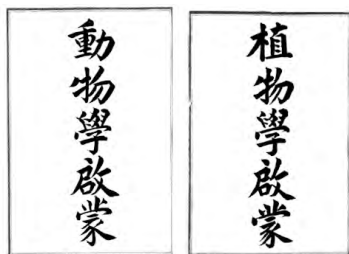 動物學啟蒙
植物學啟蒙